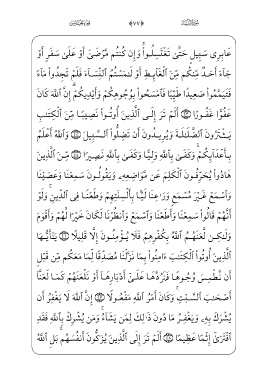 عَابِرِى سَبِيلٍ حَتَّىٰ تَغْتَسِلُوا۟ ۚ وَإِن كُنتُم مَّرْضَىٰٓ أَوْ عَلَىٰ سَفَرٍ أَوْ
جَآءَ أَحَدٌ مِّنكُم مِّنَ ٱلْغَآئِطِ أَوْ لَٰمَسْتُمُ ٱلنِّسَآءَ فَلَمْ تَجِدُوا۟ مَآءً
فَتَيَمَّمُوا۟ صَعِيدًا طَيِّبًا فَٱمْسَحُوا۟ بِوُجُوهِكُمْ وَأَيْدِيكُمْ ۗ إِنَّ ٱللَّهَ كَانَ
عَفُوًّا غَفُورًا أَلَمْ تَرَ إِلَى ٱلَّذِينَ أُوتُوا۟ نَصِيبًا مِّنَ ٱلْكِتَٰبِ
يَشْتَرُونَ ٱلضَّلَٰلَةَ وَيُرِيدُونَ أَن تَضِلُّوا۟ ٱلسَّبِيلَ وَٱللَّهُ أَعْلَمُ
بِأَعْدَآئِكُمْ ۚ وَكَفَىٰ بِٱللَّهِ وَلِيًّا وَكَفَىٰ بِٱللَّهِ نَصِيرًا مِّنَ ٱلَّذِينَ
هَادُوا۟ يُحَرِّفُونَ ٱلْكَلِمَ عَن مَّوَاضِعِهِۦ وَيَقُولُونَ سَمِعْنَا وَعَصَيْنَا
وَٱسْمَعْ غَيْرَ مُسْمَعٍ وَرَٰعِنَا لَيًّۢا بِأَلْسِنَتِهِمْ وَطَعْنًا فِى ٱلدِّينِ ۚ وَلَوْ
أَنَّهُمْ قَالُوا۟ سَمِعْنَا وَأَطَعْنَا وَٱسْمَعْ وَٱنظُرْنَا لَكَانَ خَيْرًا لَّهُمْ وَأَقْوَمَ
وَلَٰكِن لَّعَنَهُمُ ٱللَّهُ بِكُفْرِهِمْ فَلَا يُؤْمِنُونَ إِلَّا قَلِيلًا يَٰٓأَيُّهَا
ٱلَّذِينَ أُوتُوا۟ ٱلْكِتَٰبَ ءَامِنُوا۟ بِمَا نَزَّلْنَا مُصَدِّقًا لِّمَا مَعَكُم مِّن قَبْلِ
أَن نَّطْمِسَ وُجُوهًا فَنَرُدَّهَا عَلَىٰٓ أَدْبَارِهَآ أَوْ نَلْعَنَهُمْ كَمَا لَعَنَّآ
أَصْحَٰبَ ٱلسَّبْتِ ۚ وَكَانَ أَمْرُ ٱللَّهِ مَفْعُولًا إِنَّ ٱللَّهَ لَا يَغْفِرُ أَن
يُشْرَكَ بِهِۦ وَيَغْفِرُ مَا دُونَ ذَٰلِكَ لِمَن يَشَآءُ ۚ وَمَن يُشْرِكْ بِٱللَّهِ فَقَدِ
ٱفْتَرَىٰٓ إِثْمًا عَظِيمًا أَلَمْ تَرَ إِلَى ٱلَّذِينَ يُزَكُّونَ أَنفُسَهُم ۚ بَلِ ٱللَّهُ